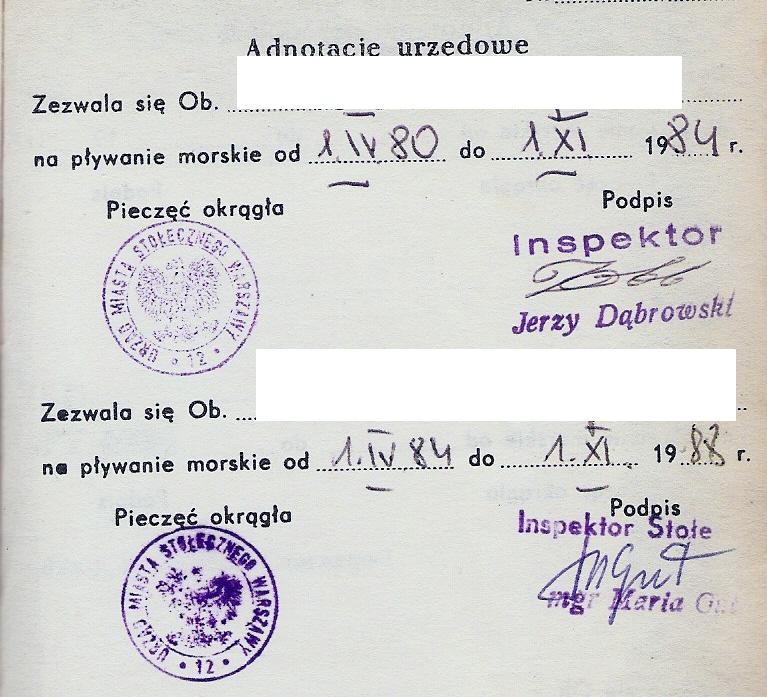 Adnotacje urzędowe
Zezwala się Ob.
na pływanie morskie od 1.IV 80 do 1.XI. 1984 r.
Pieczęć okrągła Podpis
URZĄD MIASTA STOŁECZNEGO WARSZAWY • 12 •
Inspektor
Jerzy Dąbrowski
Zezwala się Ob.
na pływanie morskie od 1.IV 84 do 1.XI. 1988 r.
Pieczęć okrągła Podpis
URZĄD MIASTA STOŁECZNEGO WARSZAWY • 12 •
Inspektor Stołe
mgr Maria Gut